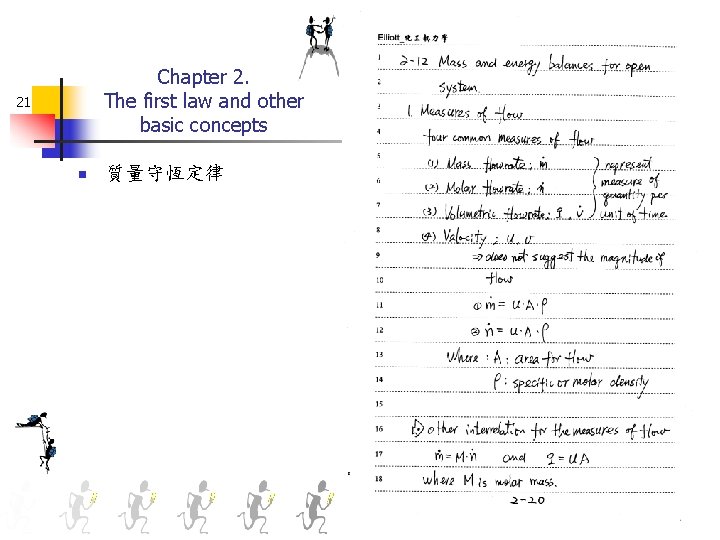 21
Chapter 2.
The first law and other
basic concepts
質量守恆定律
Elliott_化工熱力學
1 2-12 Mass and energy balances for open
2 System.
3 1. Measures of flow
4 four common measures of flow
5 (1) Mass flowrate: ṁ
6 (2) Molar flowrate: ṅ
7 (3) Volumetric flowrate: q, v̇
represent
measure of
quantity per
unit of time.
8 (4) Velocity: u, v
9 ⇒ does not suggest the magnitude of
10 flow
11 ① ṁ = u·A·ρ
12 ② ṅ = u·A·ρ
13 where: A: area for flow
14 ρ: specific or molar density
15
16 other interrelation for the measures of flow
17 ṁ = M·ṅ and q = uA
18 where M is molar mass.
2-20